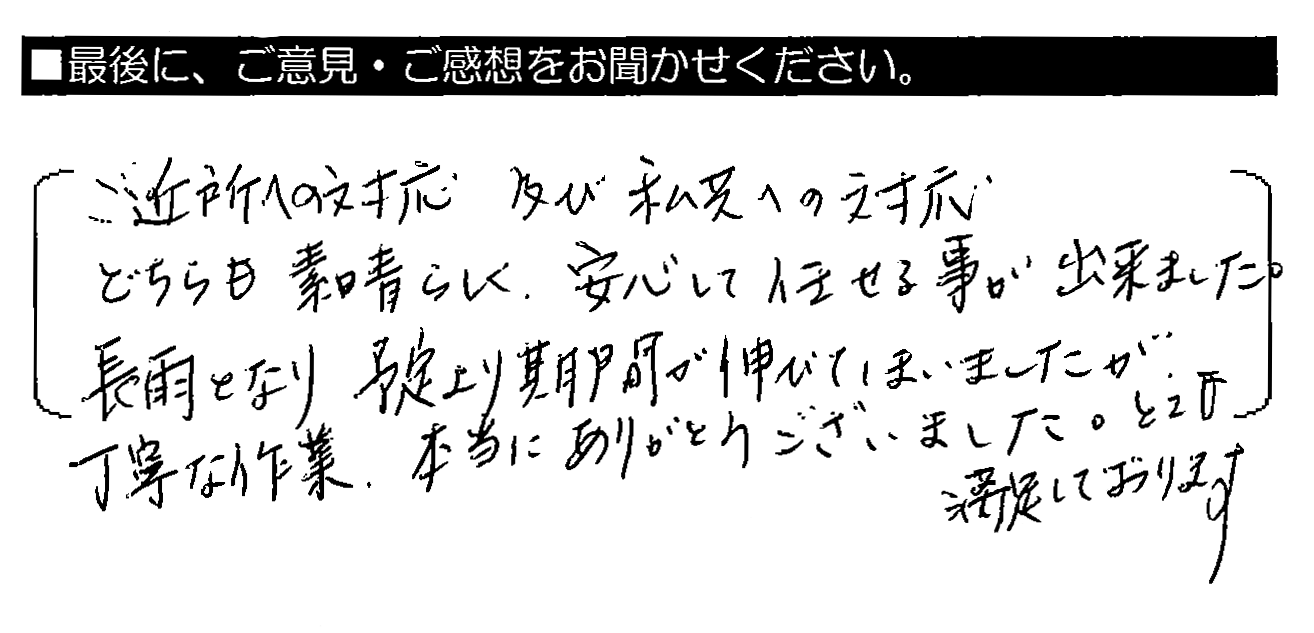 ■最後に、ご意見・ご感想をお聞かせください。
ご近所への対応 及び 私共への対応
どちらも 素晴らしく、安心して 任せる事が 出来ました。
長雨となり 予定より期間が伸びてしまいましたが、
丁寧な作業、本当にありがとうございました。とても
満足しております